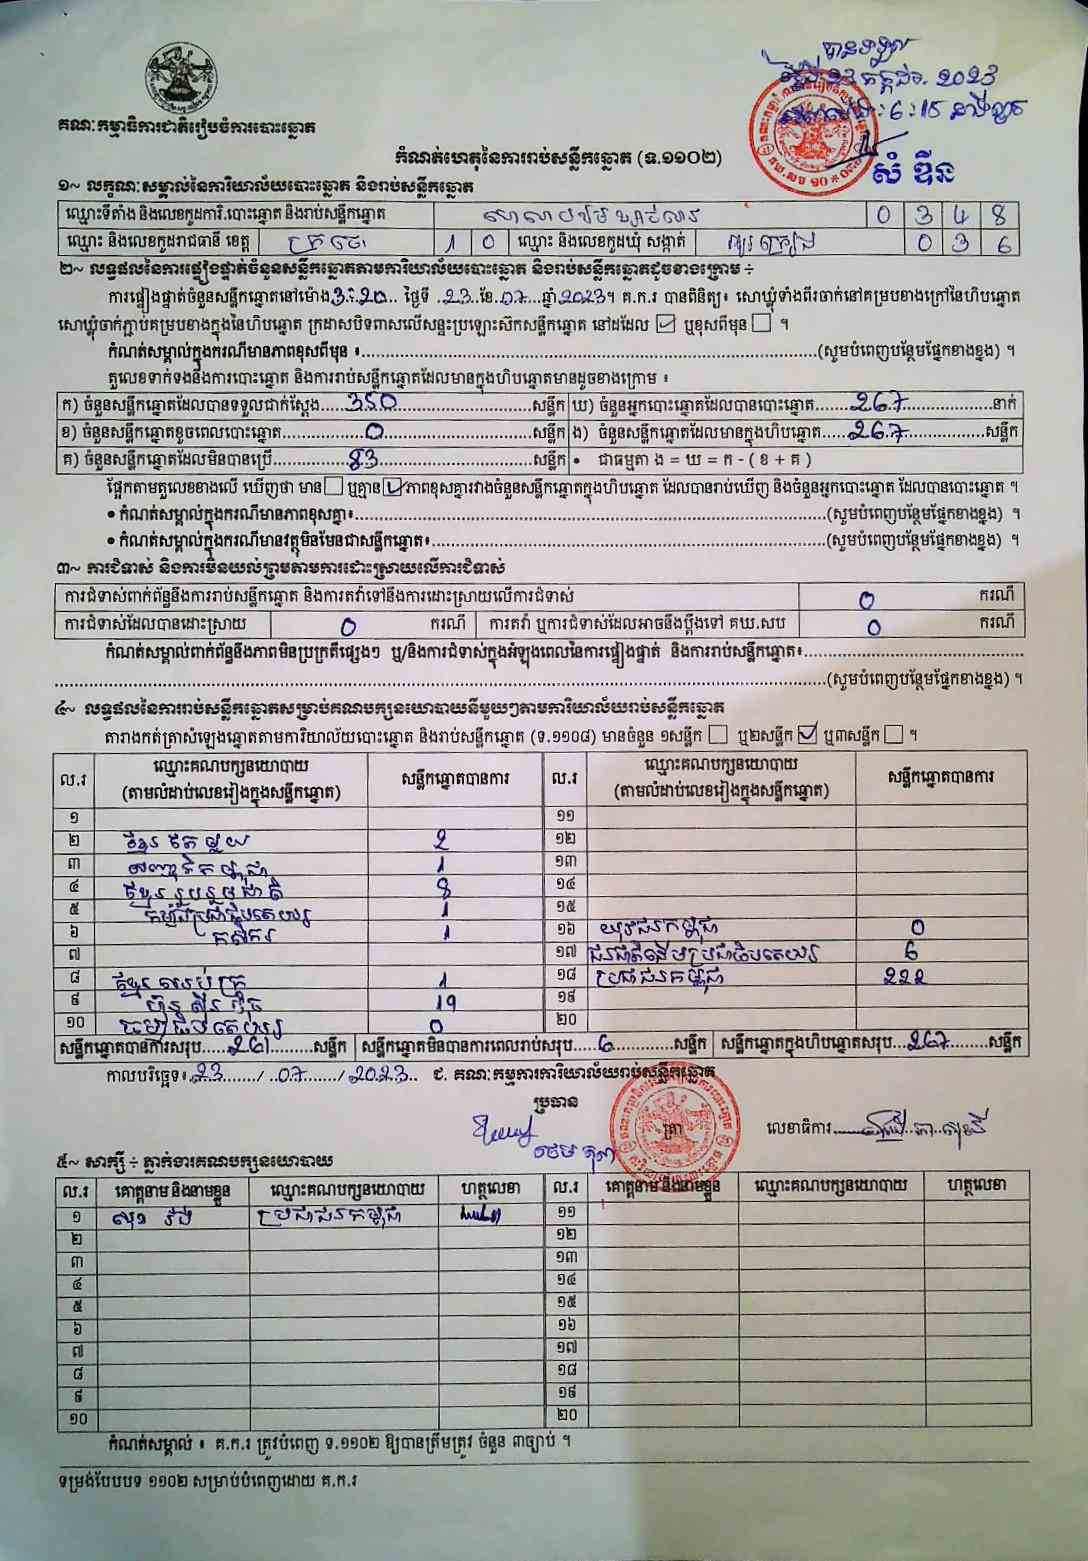 បានទទួល
ថ្ងៃទី 23 កក្កដា 2023
ម៉ោង: 6:15 នាទីល្ងាច
សំ ឌីន
គណៈកម្មាធិការជាតិរៀបចំការបោះឆ្នោត
កំណត់ហេតុនៃការរាប់សន្លឹកឆ្នោត (ទ.១១០២)
១~ លក្ខណៈសម្គាល់នៃការិយាល័យបោះឆ្នោត និងរាប់សន្លឹកឆ្នោត
ឈ្មោះទីតាំង និងលេខកូដការិ.បោះឆ្នោត និងរាប់សន្លឹកឆ្នោត 0 3 4 8
ឈ្មោះ និងលេខកូដរាជធានី ខេត្ត ក្រចេះ 1 0 ឈ្មោះ និងលេខកូដឃុំ សង្កាត់ 0 3 6
២~ លទ្ធផលនៃការផ្ទៀងផ្ទាត់ចំនួនសន្លឹកឆ្នោតតាមការិយាល័យបោះឆ្នោត និងរាប់សន្លឹកឆ្នោតដូចខាងក្រោម ÷
ការផ្ទៀងផ្ទាត់ចំនួនសន្លឹកឆ្នោតនៅម៉ោង 3:20 ថ្ងៃទី 23 ខែ 07 ឆ្នាំ 2023។ គ.ក.រ បានពិនិត្យ៖ សោឃ្លុំទាំងពីរចាក់នៅគម្របខាងក្រៅនៃហិបឆ្នោត
សោឃ្លុំចាក់ភ្ជាប់គម្របខាងក្នុងនៃហិបឆ្នោត ក្រដាសបិទពាសលើសន្ទះប្រឡោះស៊កសន្លឹកឆ្នោត នៅដដែល ☑ ឬខុសពីមុន ☐ ។
កំណត់សម្គាល់ក្នុងករណីមានភាពខុសពីមុន ៖ (សូមបំពេញបន្ថែមផ្នែកខាងខ្នង) ។
តួលេខទាក់ទងនឹងការបោះឆ្នោត និងការរាប់សន្លឹកឆ្នោតដែលមានក្នុងហិបឆ្នោតមានដូចខាងក្រោម ៖
ក) ចំនួនសន្លឹកឆ្នោតដែលបានទទួលជាក់ស្តែង 350 សន្លឹក ឃ) ចំនួនអ្នកបោះឆ្នោតដែលបានបោះឆ្នោត 267 នាក់
ខ) ចំនួនសន្លឹកឆ្នោតខូចពេលបោះឆ្នោត 0 សន្លឹក ង) ចំនួនសន្លឹកឆ្នោតដែលមានក្នុងហិបឆ្នោត 267 សន្លឹក
គ) ចំនួនសន្លឹកឆ្នោតដែលមិនបានប្រើ 83 សន្លឹក • ជាធម្មតា ង = ឃ = ក - ( ខ + គ )
ផ្អែកតាមតួលេខខាងលើ ឃើញថា មាន ☐ ឬគ្មាន ☑ ភាពខុសគ្នារវាងចំនួនសន្លឹកឆ្នោតក្នុងហិបឆ្នោត ដែលបានរាប់ឃើញ និងចំនួនអ្នកបោះឆ្នោត ដែលបានបោះឆ្នោត ។
• កំណត់សម្គាល់ក្នុងករណីមានភាពខុសគ្នា៖ (សូមបំពេញបន្ថែមផ្នែកខាងខ្នង) ។
• កំណត់សម្គាល់ក្នុងករណីមានវត្ថុមិនមែនជាសន្លឹកឆ្នោត៖ (សូមបំពេញបន្ថែមផ្នែកខាងខ្នង) ។
៣~ ការជំទាស់ និងការមិនយល់ព្រមតាមការដោះស្រាយលើការជំទាស់
ការជំទាស់ពាក់ព័ន្ធនឹងការរាប់សន្លឹកឆ្នោត និងការតវ៉ាទៅនឹងការដោះស្រាយលើការជំទាស់ 0 ករណី
ការជំទាស់ដែលបានដោះស្រាយ 0 ករណី ការតវ៉ា ឬការជំទាស់ដែលអាចនឹងប្តឹងទៅ គឃ.សប 0 ករណី
កំណត់សម្គាល់ពាក់ព័ន្ធនឹងភាពមិនប្រក្រតីផ្សេងៗ ឬ/និងការជំទាស់ក្នុងអំឡុងពេលនៃការផ្ទៀងផ្ទាត់ និងការរាប់សន្លឹកឆ្នោត៖
(សូមបំពេញបន្ថែមផ្នែកខាងខ្នង) ។
៤~ លទ្ធផលនៃការរាប់សន្លឹកឆ្នោតសម្រាប់គណបក្សនយោបាយនីមួយៗតាមការិយាល័យរាប់សន្លឹកឆ្នោត
តារាងកត់ត្រាសំឡេងឆ្នោតតាមការិយាល័យបោះឆ្នោត និងរាប់សន្លឹកឆ្នោត (ទ.១១០៨) មានចំនួន ១សន្លឹក ☐ ឬ២សន្លឹក ☑ ឬ៣សន្លឹក ☐ ។
ល.រ ឈ្មោះគណបក្សនយោបាយ (តាមលំដាប់លេខរៀងក្នុងសន្លឹកឆ្នោត) សន្លឹកឆ្នោតបានការ ល.រ ឈ្មោះគណបក្សនយោបាយ (តាមលំដាប់លេខរៀងក្នុងសន្លឹកឆ្នោត) សន្លឹកឆ្នោតបានការ
១ ១១
២ ខ្មែរតែមួយ 2 ១២
៣ សញ្ជាតិកម្ពុជា 1 ១៣
៤ ខ្មែររួបរួមជាតិ 8 ១៤
៥ កម្លាំងប្រជាធិបតេយ្យ 1 ១៥
៦ កសិករ 1 ១៦ យុវជនកម្ពុជា 0
៧ ១៧ ជនជាតិដើមប្រជាធិបតេយ្យ 6
៨ 1 ១៨ ប្រជាជនកម្ពុជា 222
៩ ហ៊្វុនស៊ិនប៉ិច 19 ១៩
១០ ធម្មាធិបតេយ្យ 0 ២០
សន្លឹកឆ្នោតបានការសរុប 261 សន្លឹក សន្លឹកឆ្នោតមិនបានការពេលរាប់សរុប 6 សន្លឹក សន្លឹកឆ្នោតក្នុងហិបឆ្នោតសរុប 267 សន្លឹក
កាលបរិច្ឆេទ៖ 23 / 07 / 2023 ជ. គណៈកម្មការការិយាល័យរាប់សន្លឹកឆ្នោត
ប្រធាន ត្រា លេខាធិការ
៥~ សាក្សី ÷ ភ្នាក់ងារគណបក្សនយោបាយ
ល.រ គោត្តនាម និងនាមខ្លួន ឈ្មោះគណបក្សនយោបាយ ហត្ថលេខា ល.រ គោត្តនាម និងនាមខ្លួន ឈ្មោះគណបក្សនយោបាយ ហត្ថលេខា
១ ប្រជាជនកម្ពុជា ១១
២ ១២
៣ ១៣
៤ ១៤
៥ ១៥
៦ ១៦
៧ ១៧
៨ ១៨
៩ ១៩
១០ ២០
កំណត់សម្គាល់ ៖ គ.ក.រ ត្រូវបំពេញ ទ.១១០២ ឱ្យបានត្រឹមត្រូវ ចំនួន ៣ច្បាប់ ។
ទម្រង់បែបបទ ១១០២ សម្រាប់បំពេញដោយ គ.ក.រ